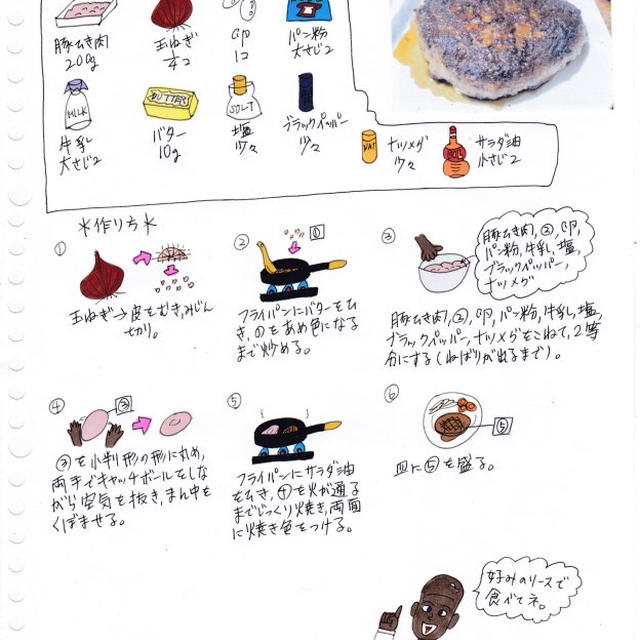 豚ひき肉
200g
玉ねぎ
卵
1コ
パン粉
大さじ2
MILK
牛乳
大さじ2
BUTTER
バター
10g
SOLT
塩
少々
ブラックペッパー
少々
NAT
ナツメグ
少々
サラダ油
小さじ2
*作り方*
①
玉ねぎ→皮をむき、みじん
切り。
②
①
フライパンにバターをひ
き、①をあめ色になる
まで炒める。
③
豚ひき肉、②、卵、
パン粉、牛乳、塩、
ブラックペッパー、
ナツメグ
豚ひき肉、②、卵、パン粉、牛乳、塩、
ブラックペッパー、ナツメグをこねて、2等
分にする(ねばりが出るまで)。
④
③
③を小判形の形に丸め、
両手でキャッチボールをしな
がら空気を抜き、まん中を
くぼませる。
⑤
フライパンにサラダ油
をひき、④を火が通る
までじっくり焼き、両面
に焼き色をつける。
⑥
⑤
皿に⑤を盛る。
好みのソースで
食べてネ。